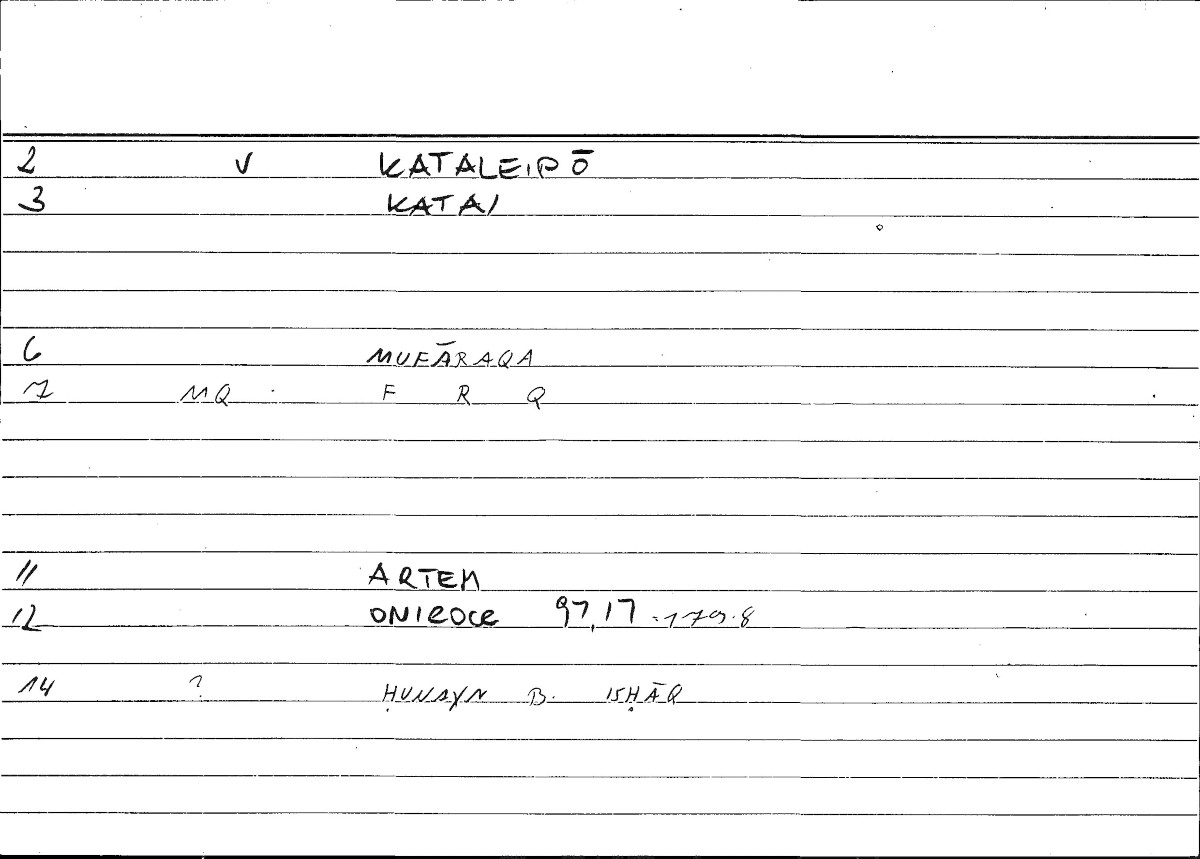 2 V KATALEIPŌ
3 KATAI
6 MUFĀRAQA
7 MQ F R Q
11 ARTEM
12 ONIROCR 97,17 = 179.8
14 ? ḤUNAYN B. ISḤĀQ